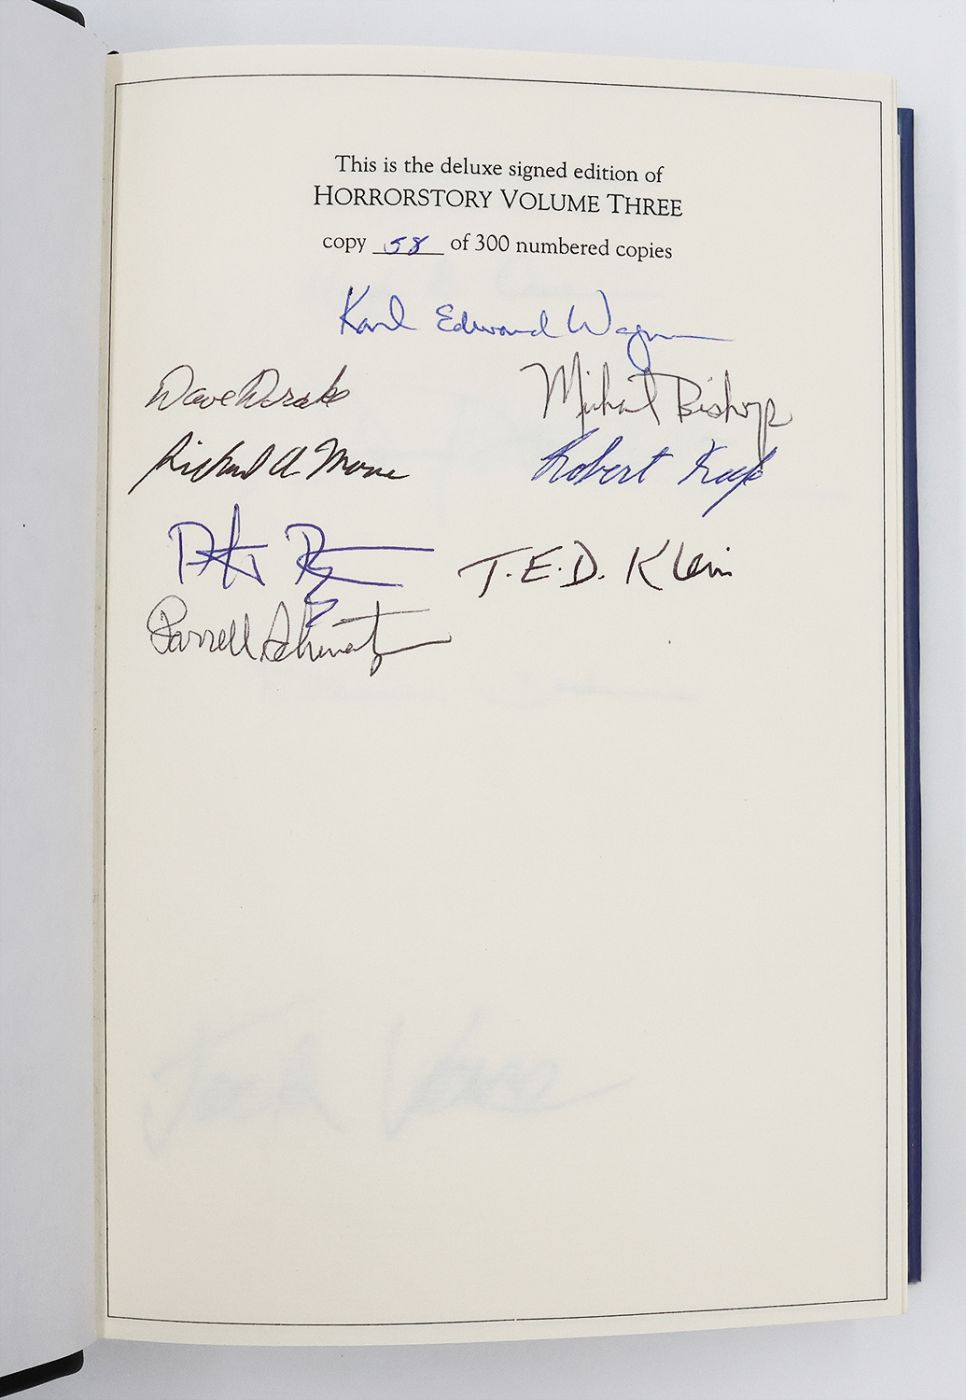 This is the deluxe signed edition of
HORRORSTORY VOLUME THREE
copy 58 of 300 numbered copies
Karl Edward Wagner
Dave Drake
Michael Bishop
Richard A. Moore
Robert
T.E.D. Klein
Darrell Schweitzer
Jack Vance